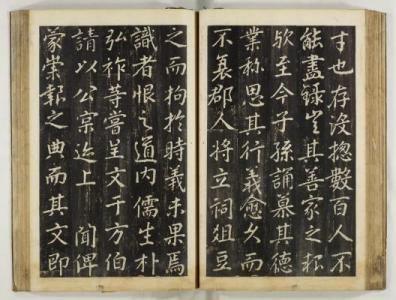 才也存沒摠數百人不
能盡錄豈其善家之
欤至今子孫誦慕其德
業称思其行義愈久而
不衰郡人将立祠俎豆
之而拘於時義未果焉
識者恨之道内儒生朴
弘祚等嘗呈文于方伯
請以公迹上 聞俾
蒙崇報之典而其文即